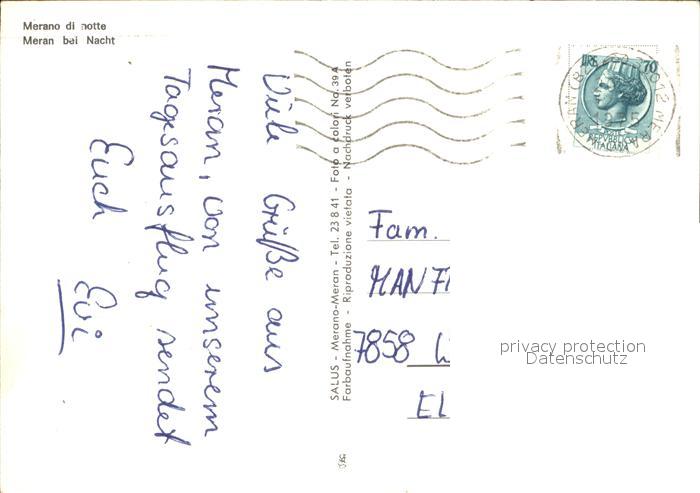 Merano di notte
Meran bei Nacht
Viele Grüße aus
Meran, von unserem
Tagesausflug sendet
Euch
Evi
SALUS - Merano-Meran - Tel. 23 8 41 - Foto a colori No. 39A
Farbaufnahme - Riproduzione vietata - Nachdruck verboten
LIRE 70
REPUBBLICA
ITALIANA
Fam.
MANF
7858
EL
privacy protection
Datenschutz